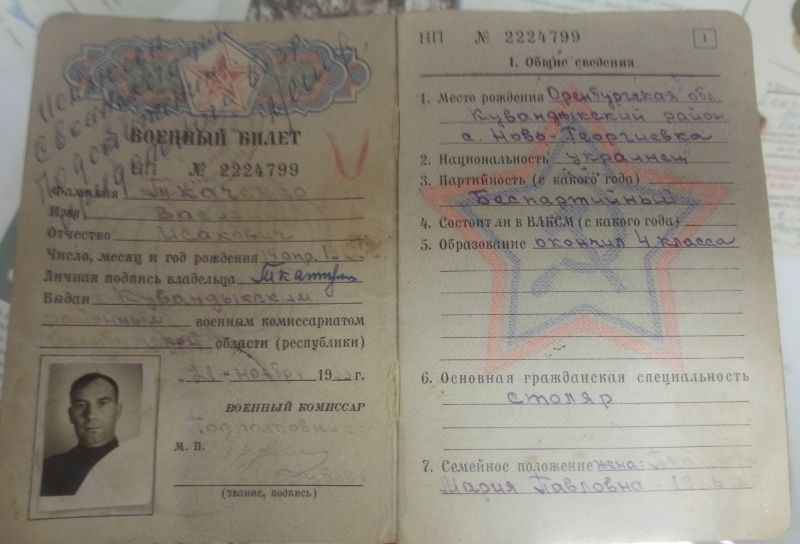 ВОЕННЫЙ БИЛЕТ
НП № 2224799
Фамилия Ткаченко
Имя Василий
Отчество Исакович
Число, месяц и год рождения 14 апр. 1
Личная подпись владельца
Выдан Кувандыкским
районным военным комиссариатом
Оренбургской области (республики)
„21" ноября 19 г.
ВОЕННЫЙ КОМИССАР
Подполковник
М. П.
(звание, подпись)
НП № 2224799
1
I. Общие сведения
1. Место рождения Оренбургская обл.
Кувандыкский район
с. Ново-Георгиевка
2. Национальность украинец
3. Партийность (с какого года)
Беспартийный
4. Состоит ли в ВЛКСМ (с какого года)
5. Образование окончил 4 класса
6. Основная гражданская специальность
столяр
7. Семейное положение жена:
Мария Павловна - 19